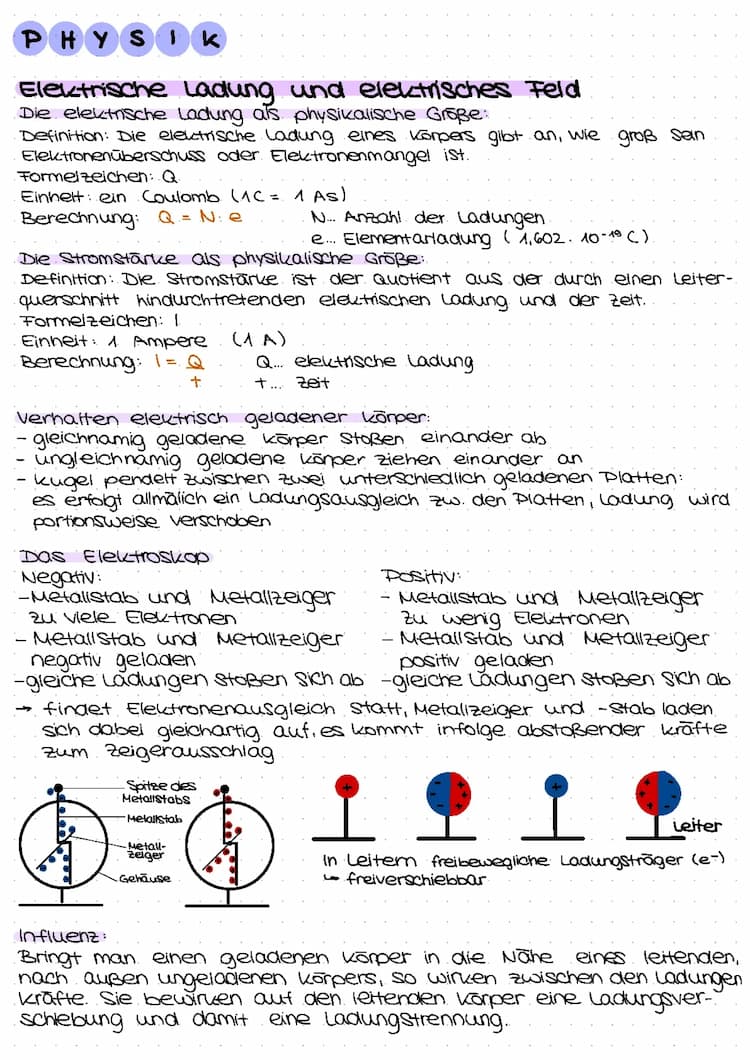 PHYSIK
Elektrische Ladung und elektrisches Feld
Die elektrische Ladung als physikalische Größe:
Definition: Die elektrische Ladung eines Körpers gibt an, wie groß sein
Elektronenüberschuss oder Elektronenmangel ist.
Formelzeichen: Q
Einheit: ein Coulomb (1C = 1 As)
Berechnung: Q = N · e N... Anzahl der Ladungen
e... Elementarladung (1,602 · 10⁻¹⁹ C)
Die Stromstärke als physikalische Größe:
Definition: Die Stromstärke ist der Quotient aus der durch einen Leiter-
querschnitt hindurchtretenden elektrischen Ladung und der Zeit.
Formelzeichen: I
Einheit: 1 Ampere (1 A)
Berechnung: I = Q Q... elektrische Ladung
t t... Zeit
Verhalten elektrisch geladener Körper:
- gleichnamig geladene Körper stoßen einander ab
- ungleichnamig geladene Körper ziehen einander an
- Kugel pendelt zwischen zwei unterschiedlich geladenen Platten:
es erfolgt allmälich ein Ladungsausgleich zw. den Platten, Ladung wird
portionsweise verschoben
Das Elektroskop
Negativ: Positiv:
- Metallstab und Metallzeiger - Metallstab und Metallzeiger
zu viele Elektronen zu wenig Elektronen
- Metallstab und Metallzeiger - Metallstab und Metallzeiger
negativ geladen positiv geladen
- gleiche Ladungen stoßen sich ab - gleiche Ladungen stoßen sich ab
→ findet Elektronenausgleich statt, Metallzeiger und -stab laden
sich dabei gleichartig auf, es kommt infolge abstoßender Kräfte
zum Zeigerausschlag
Spitze des
Metallstabs
Metallstab
Metall-
zeiger
Gehäuse
+ - + - + - + + - + - + -
Leiter
In Leitern freibewegliche Ladungsträger (e-)
↳ freiverschiebbar
Influenz:
Bringt man einen geladenen Körper in die Nähe eines leitenden,
nach außen ungeladenen Körpers, so wirken zwischen den Ladungen
Kräfte. Sie bewirken auf den leitenden Körper eine Ladungsver-
schiebung und damit eine Ladungstrennung.